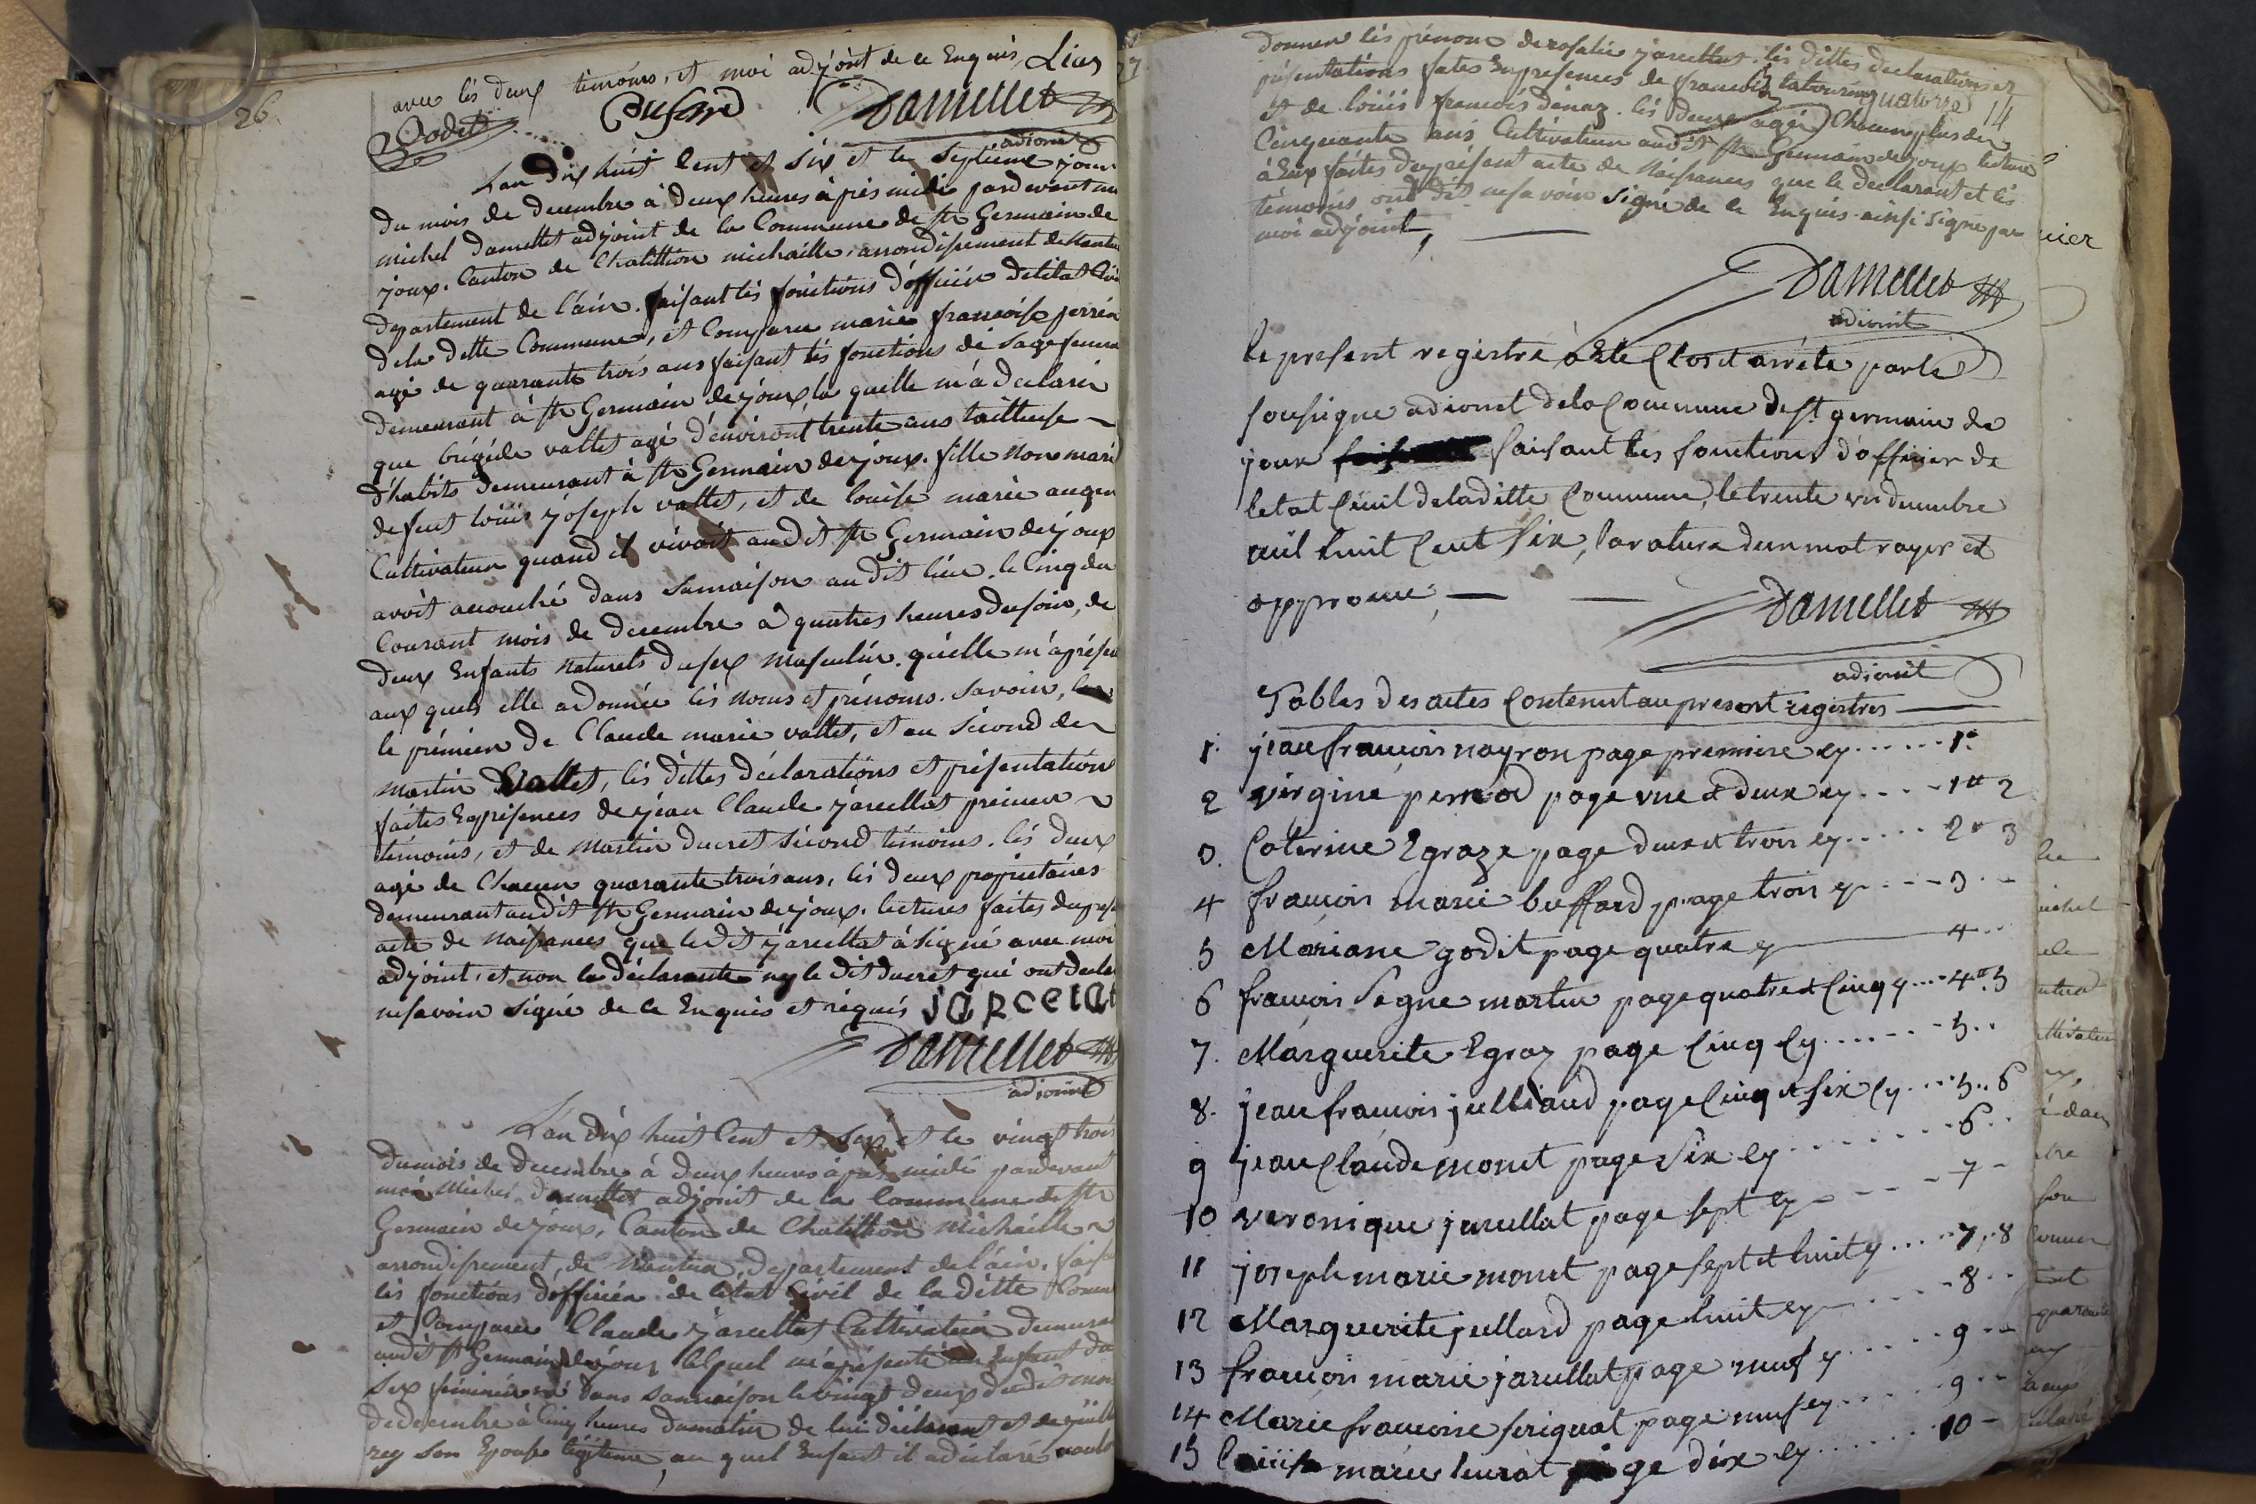 26
avec les deux témoins, et moi adjoint de ce Enquis, Lien
Godet
Dufard
Damellet
adioint
L'an dix huit Cent et six et le septieme jour
du mois de decembre à deux heures après midi pardevant moi
michel damellet adjoint de la Commune de st Germain de
joux. Canton de Chatillion michaille, arrondissement de Nantua
departement de l'ain. faisant lés fonctions d'officier de l'etat Civil
de la ditte Commune, et Comparue marie françoise perrein
agé de quarante trois ans faisant lés fonctions de sage femme
demeurant à st Germain de joux, la quelle m'a declaré
que brigide vallet agé d'environt trente ans tailleuse
d'habits demeurant à st Germain de joux. fille non marié
de feut loüis joseph vallet, et de louise marie auger
Cultivateur quand il vivoit audit st Germain de joux
avoit accouché dans sa maison au dit lieu. le Cinq du
Courant mois de decembre à quatres heures du soir, de
deux Enfants naturels du sex masculin. qu'elle m'a présen
aux quels elle a donnée lés noms et prénoms. Savoir,
le prémier de Claude marie vallet, et au sécond de
martin vallet, lés dittes déclarations et présentations
faites En présences de jean Claude jarcellat premier
témoins, et de martin ducret sécond témoins. lés deux
agé de Chacun quarante trois ans, lés deux propriétaires
demeurant audit st Germain de joux. lectures faites du pres
acte de naissances que le dit jarcellat à signé avec moi
adjoint, et non la déclarante ny le dit ducret qui ont decla
ne savoir signé de ce Enquis et réquis jarcelat
Damellet
adioint
L'an dix huit Cent et six et le vingt trois
du mois de decembre à deux heures après midi pardevant
moi Michel damellet adjoint de la Commune de st
Germain de joux, Canton de Chatillion Michaille
arrondissement de Nantua, departement de l'ain. faisa
lés fonctions d'officier de l'etat Civil de la ditte Comm
et Comparu Claude jarcellat Cultivateur demeura
audit st Germain de joux lequel m'a présenté un Enfant du
sex féminin né dans sa maison le vingt deux dudit mois
de decembre à Cinq heures du matin de lui déclarant et de
rey son Epouse légitime, au quel Enfant il a déclaré voulo
27
donner lés prénoms de rosalie jarcellat. lés dittes declarations et
présentations fates En presences de francois tabourin
quatorze 14
et de loüis francois dénaz. lés deux agé Chacun plus de
Cinquante ans Cultivateur audit st Germain de joux lecture
à Eux faites du présent acte de Naissances que le declarant et lés
témoins ont dit ne savoir signé de ce Enquis. ainsi signé par
moi adjoint,
Damellet
adioint
le present registre à Eté Clos et arrété par le
sousigne adioint de la Commune de st germain de
joux faisant les fonctions d'officier de
letat Civil de la ditte Commune, le trente un decembre
mil huit Cent six, la rature d'un mot rayer est
approuvé,
Damellet
adioint
Tables des actes Contenut au present registres
1. jean francois nayron page premiere cy ...... 1.
2 virgine pernod page une et deux cy .... 1 et 2
3. Caterine Egraze page deux et trois cy ..... 2 et 3
4 francois marie buffard page trois cy .... 3
5 Mariane godit page quatre cy 4
6 francois segne martin page quatre et Cinq cy ... 4 et 5
7. Marguerite Egraz page Cinq Cy ....... 5
8. jean francois julliand page Cinq et six Cy .... 5..6
9 jean Claude monet page six cy ........ 6
10. veronique jarcellat page sept cy 7
11 joseph marie monet page sept et huit cy .... 7..8
12 Marguerite jullard page huit cy ..... 8
13 francois marie jarcellat page neuf cy ..... 9
14 Marie francoise seriguat page neuf cy ..... 9
15 marie leurat page dix cy ...... 10